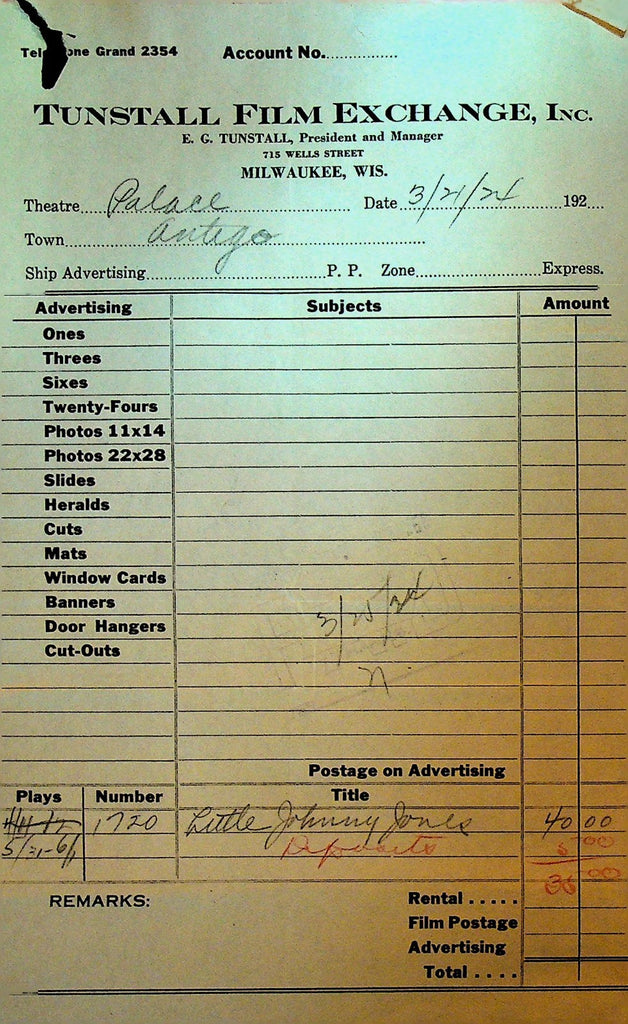 Telephone Grand 2354 Account No.
TUNSTALL FILM EXCHANGE, INC.
E. G. TUNSTALL, President and Manager
715 WELLS STREET
MILWAUKEE, WIS.
Theatre Palace Date 3/21/24 192
Town Antigo
Ship Advertising P. P. Zone Express.
Advertising Subjects Amount
Ones
Threes
Sixes
Twenty-Fours
Photos 11x14
Photos 22x28
Slides
Heralds
Cuts
Mats
Window Cards
Banners
Door Hangers
Cut-Outs
Postage on Advertising
Plays Number Title
1720 Little Johnny Jones 40 00
5/31-6/1 Deposits 5 00
REMARKS: Rental .....
Film Postage
Advertising
Total ....